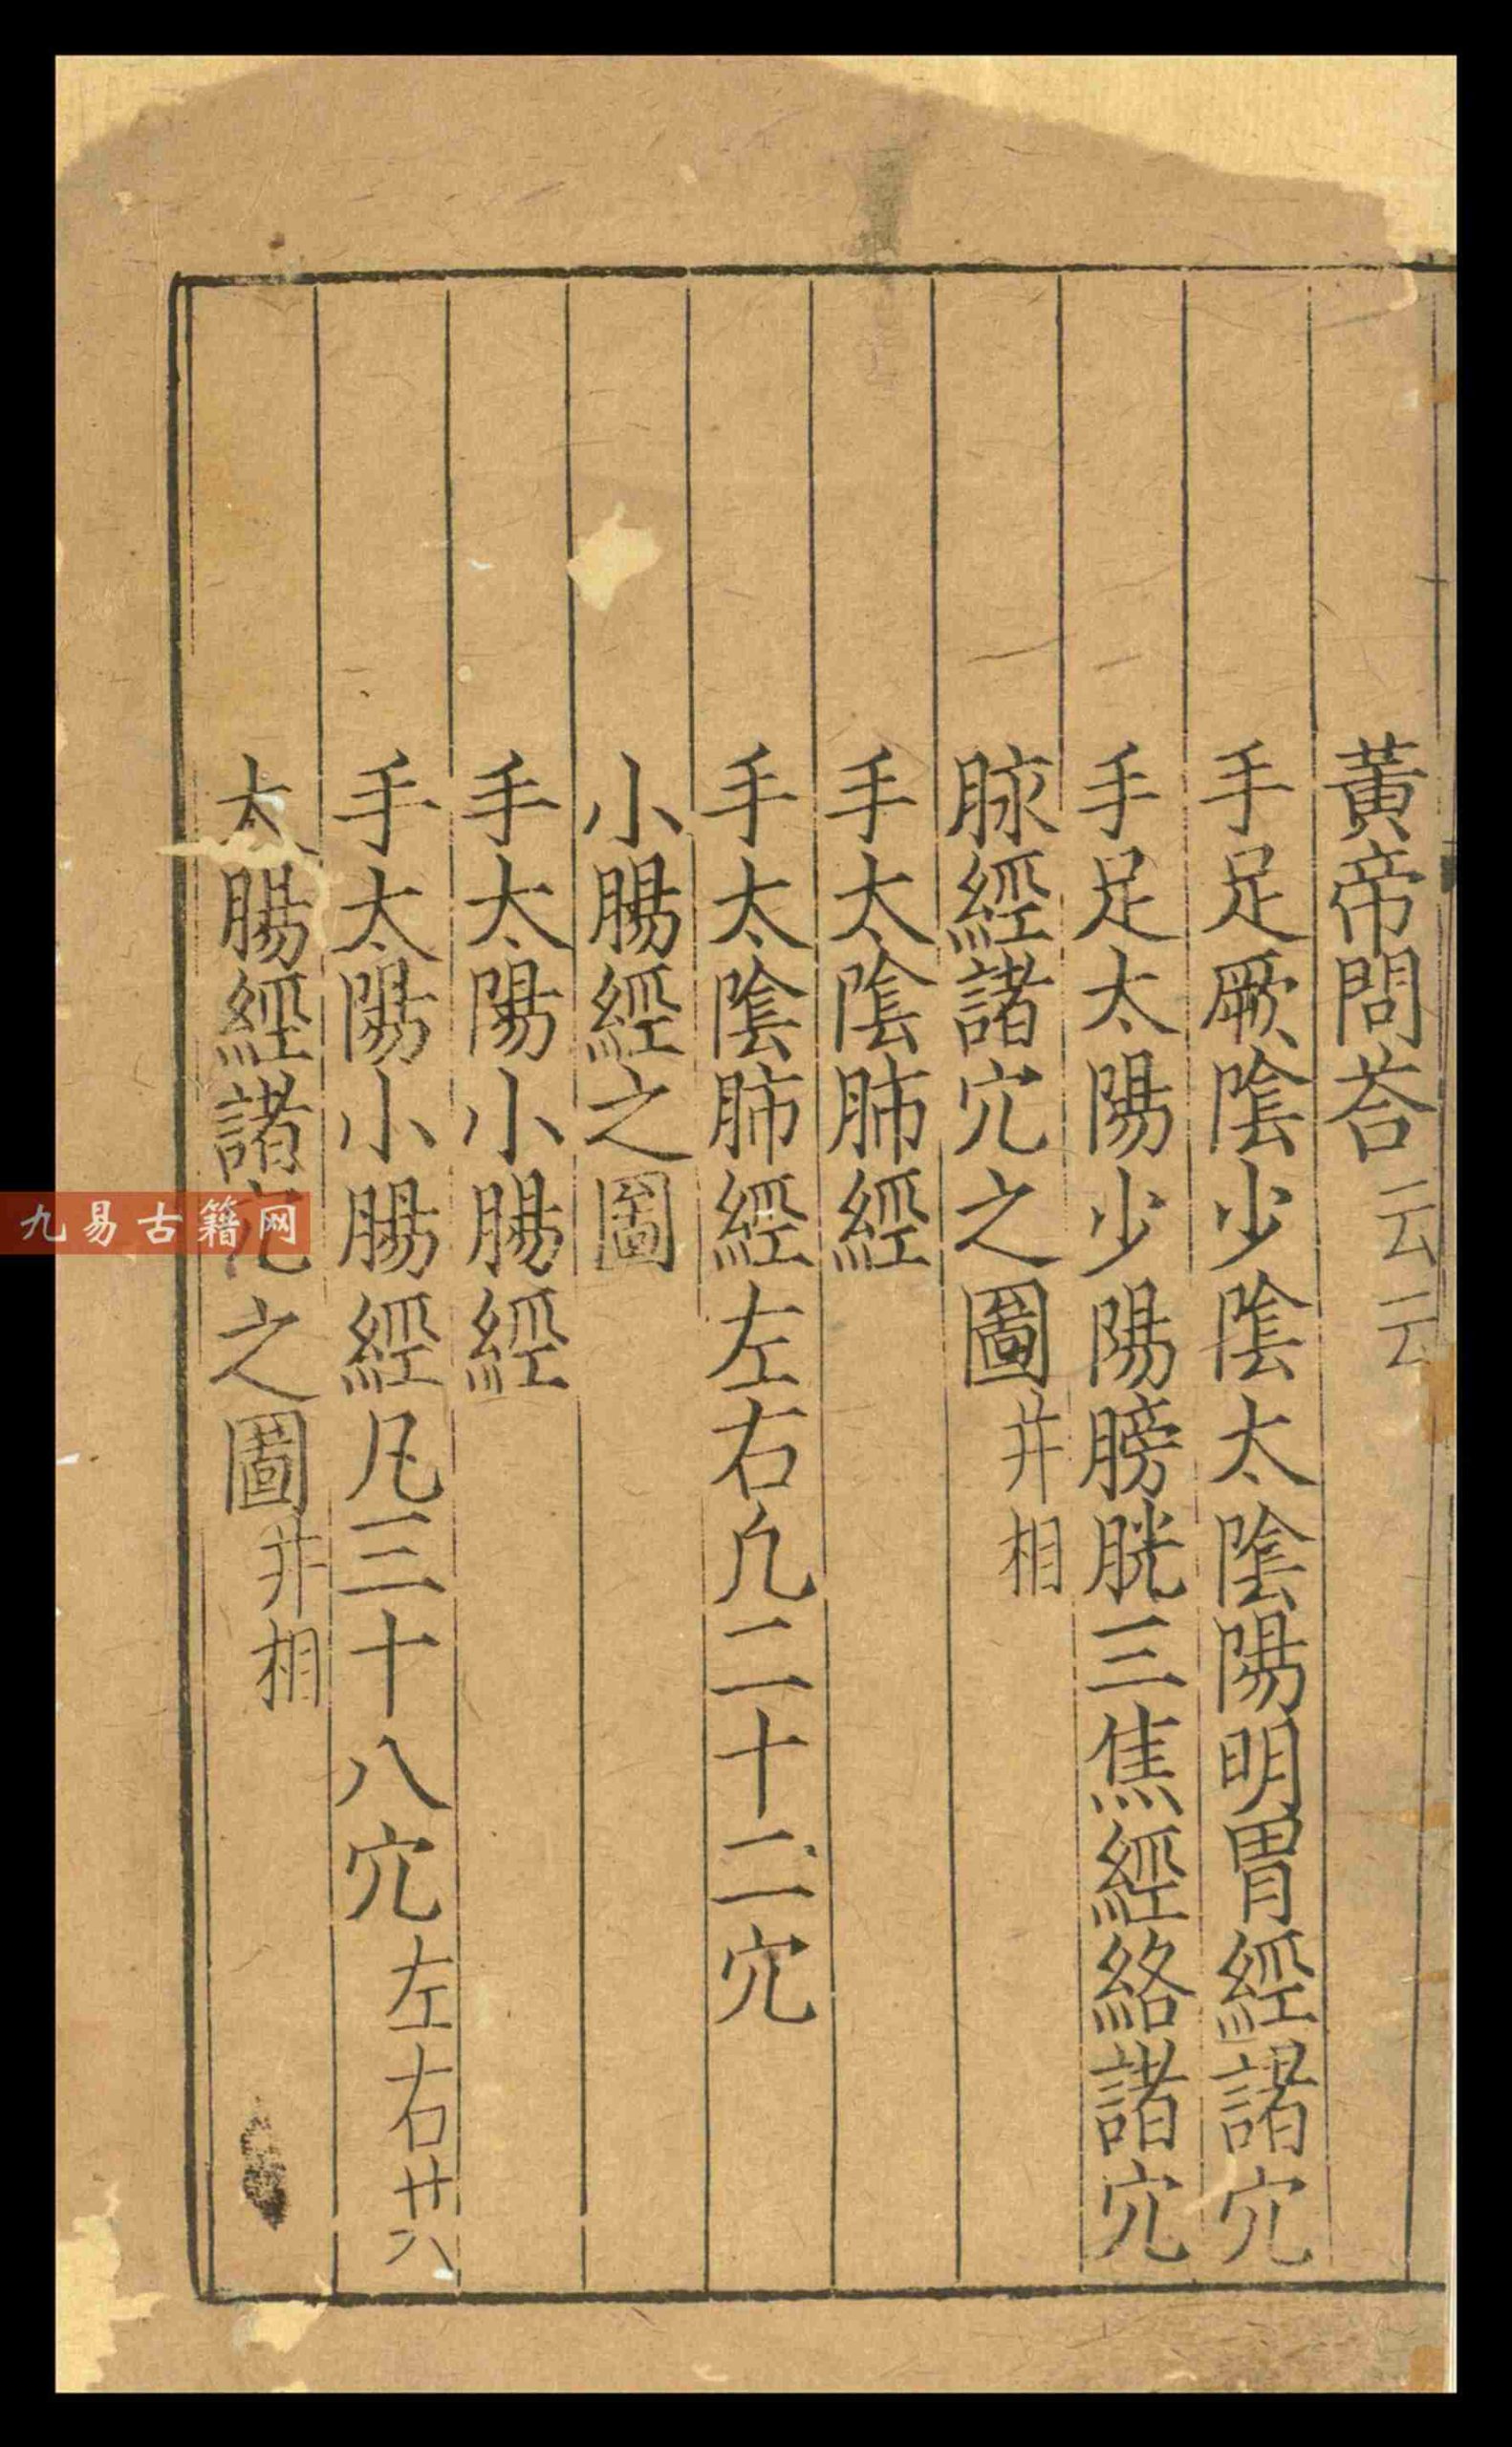 黃帝問荅云云
手足厥陰少陰太陰陽明胃經諸穴
手足太陽少陽膀胱三焦經絡諸穴
脉經諸穴之圖并相
手太陰肺經
手太陰肺經左右凢二十二穴
小腸經之圖
手太陽小腸經
手太陽小腸經凡三十八穴左右廿八
大腸經諸穴之圖并相
九易古籍网